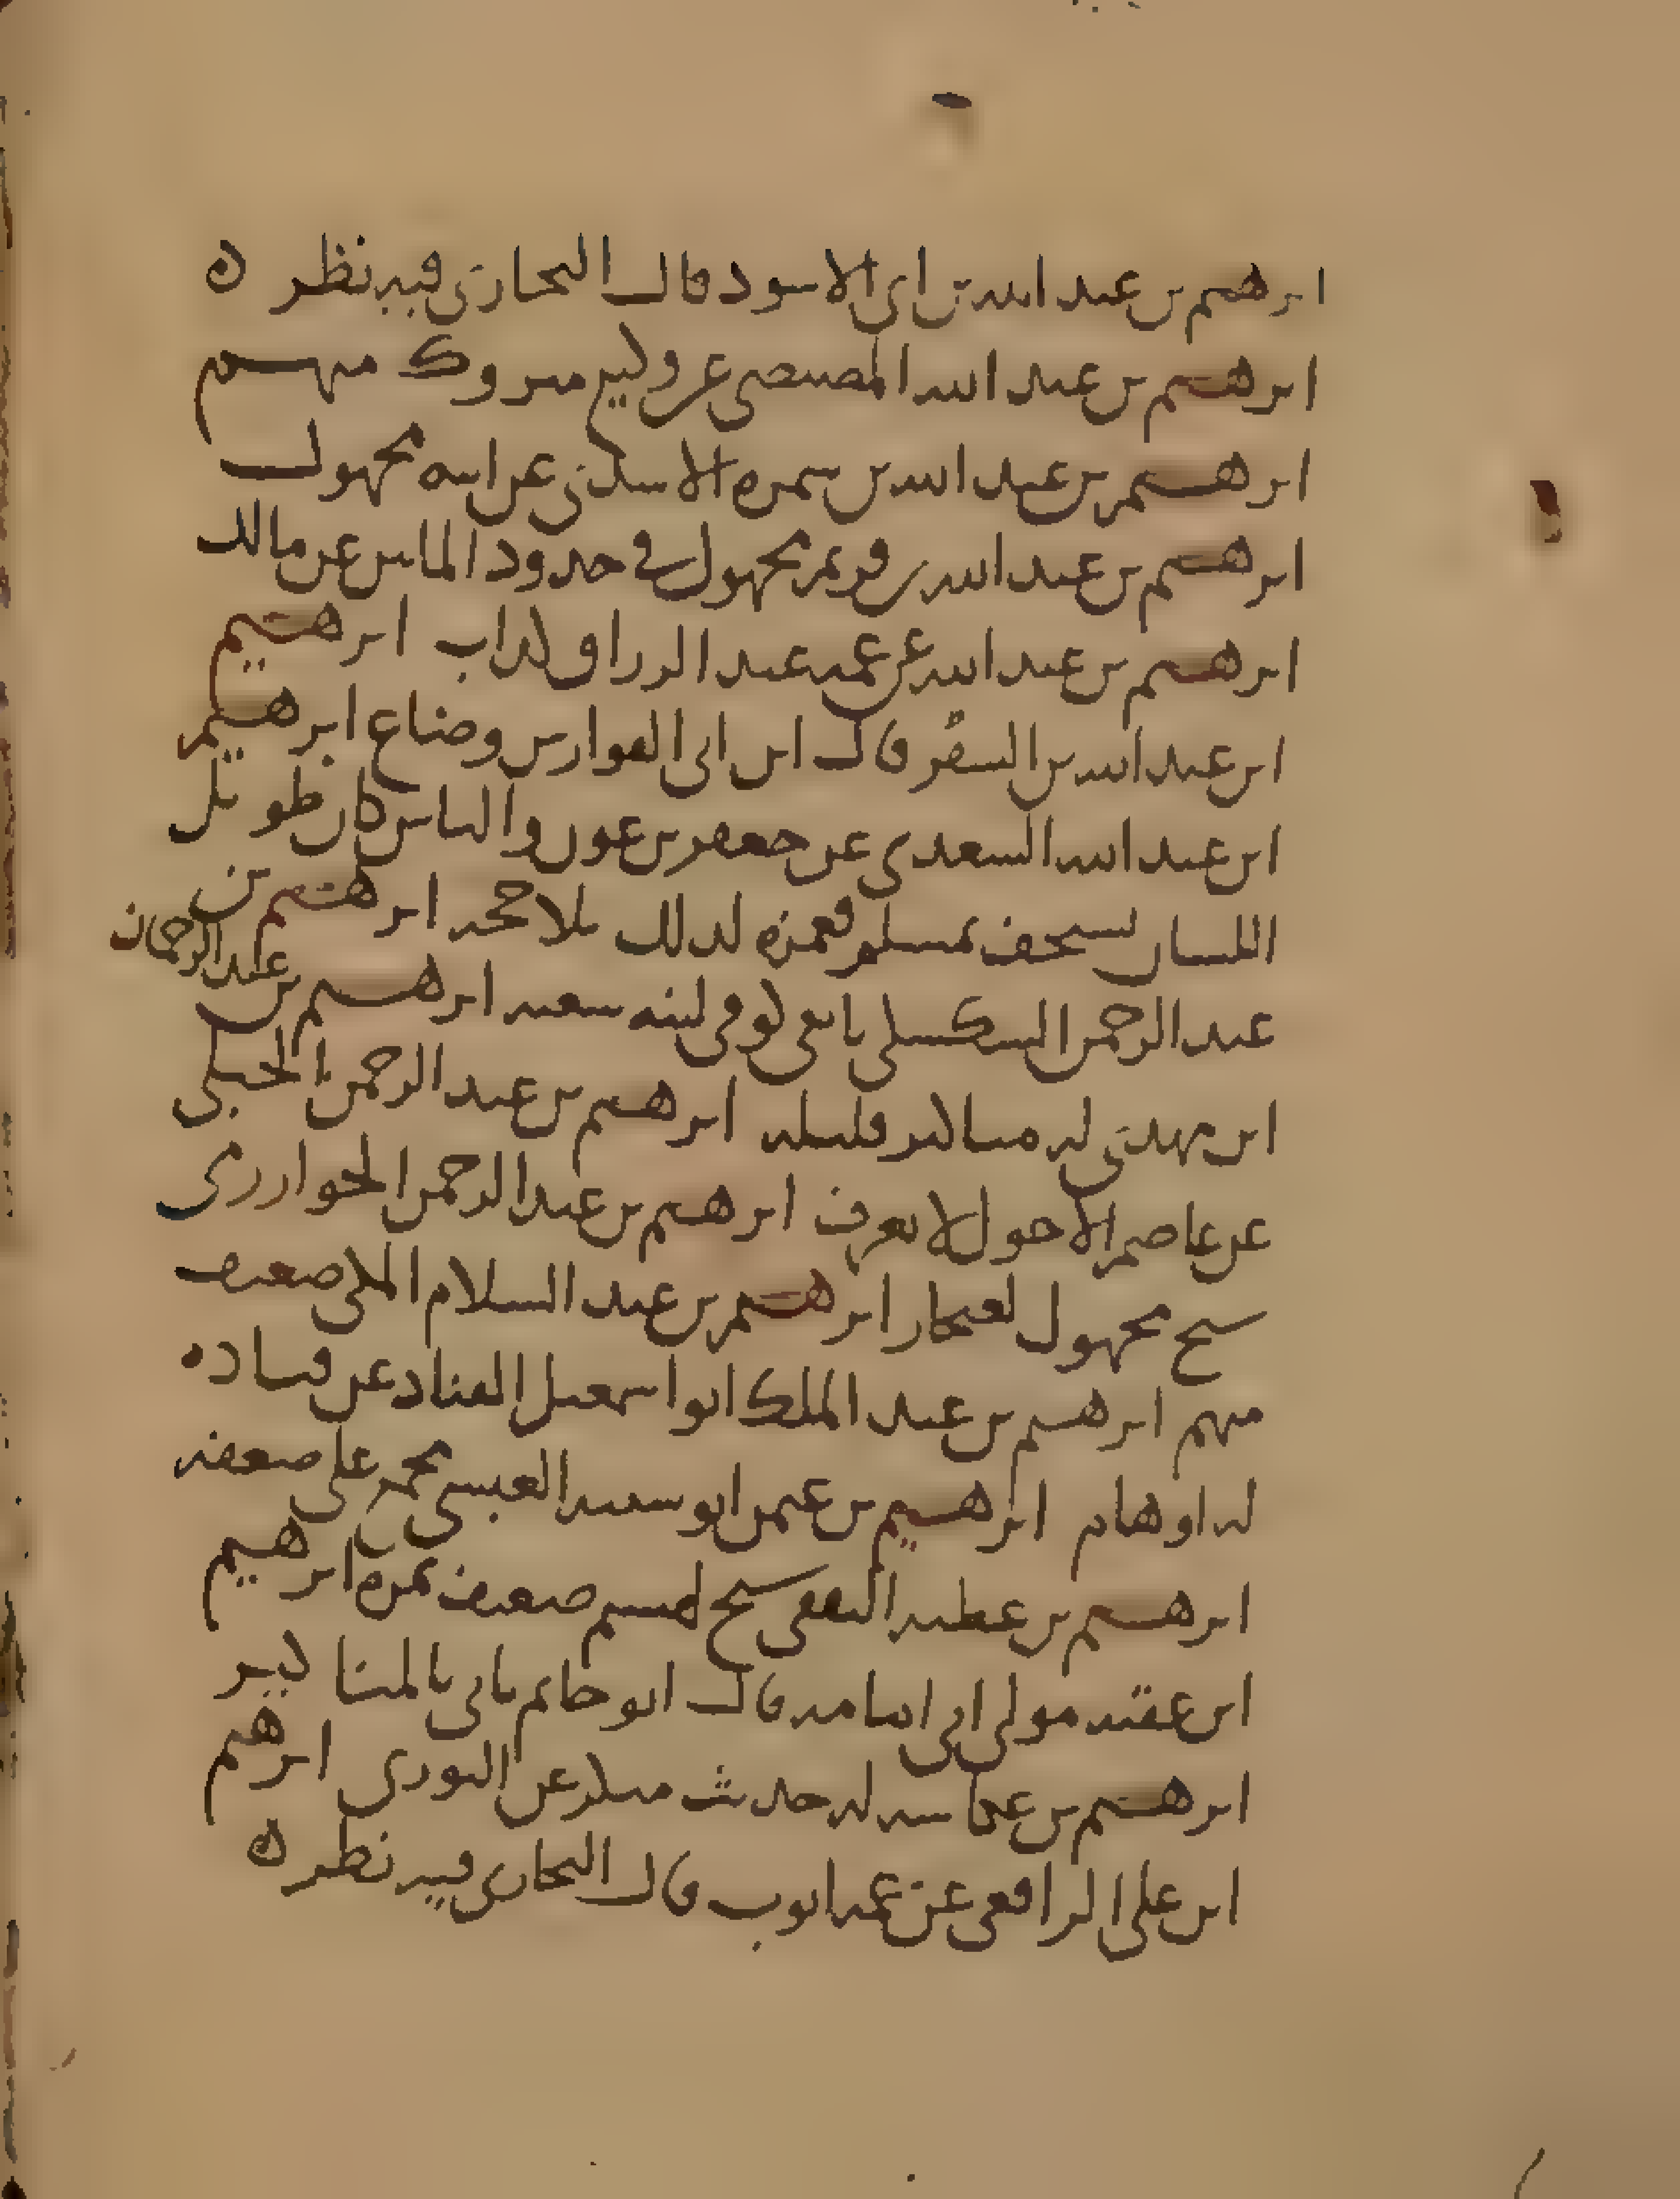 ابرهيم بن عبد الله بن ابى الاسود قال البخارى فيه نظر ه
ابرهيم بن عبد الله المصيصى عن وكيع متروك متهم
ابرهيم بن عبد الله بن سمره الاسدى عن ابيه مجهول
ابرهيم بن عبد الله بن قريم مجهول فى حدود المايتين عن مالك
ابرهيم بن عبد الله عن عمه عبد الرزاق كذاب ابرهيم
ابن عبد الله بن السفر قال ابن ابى الفوارس وضاع ابرهيم
ابن عبد الله السعدى عن جعفر بن عون والناس كان طويل
اللسان يستخف بمسلم فغمزه لذلك بلا حجه ابرهيم بن
عبد الرحمن السكسكى تابعى كوفى لينه شعبه ابرهيم بن عبد الرحمان
ابن مهدى له مناكير قليله ابرهيم بن عبد الرحمن الجبلى
عن عاصم الاحول لا يعرف ابرهيم بن عبد الرحمن الخوارزمى
شيخ مجهول لغنجار ابرهيم بن عبد السلام المكى ضعيف
متهم ابرهيم بن عبد الملك ابو اسمعيل القناد عن قتاده
له اوهام ابرهيم بن عثمن ابو شيبه العبسى مجمع على ضعفه
ابرهيم بن عطيه الثقفى شيخ لهشيم ضعيف بمره ابرهيم
ابن عقبه مولى ابى امامه قال ابو حاتم ياتى بالمناكير
ابرهيم بن عكاشه له حديث منكر عن الثورى ابرهيم
ابن على الرافعى عن عمه ايوب قال البخارى فيه نظر ه